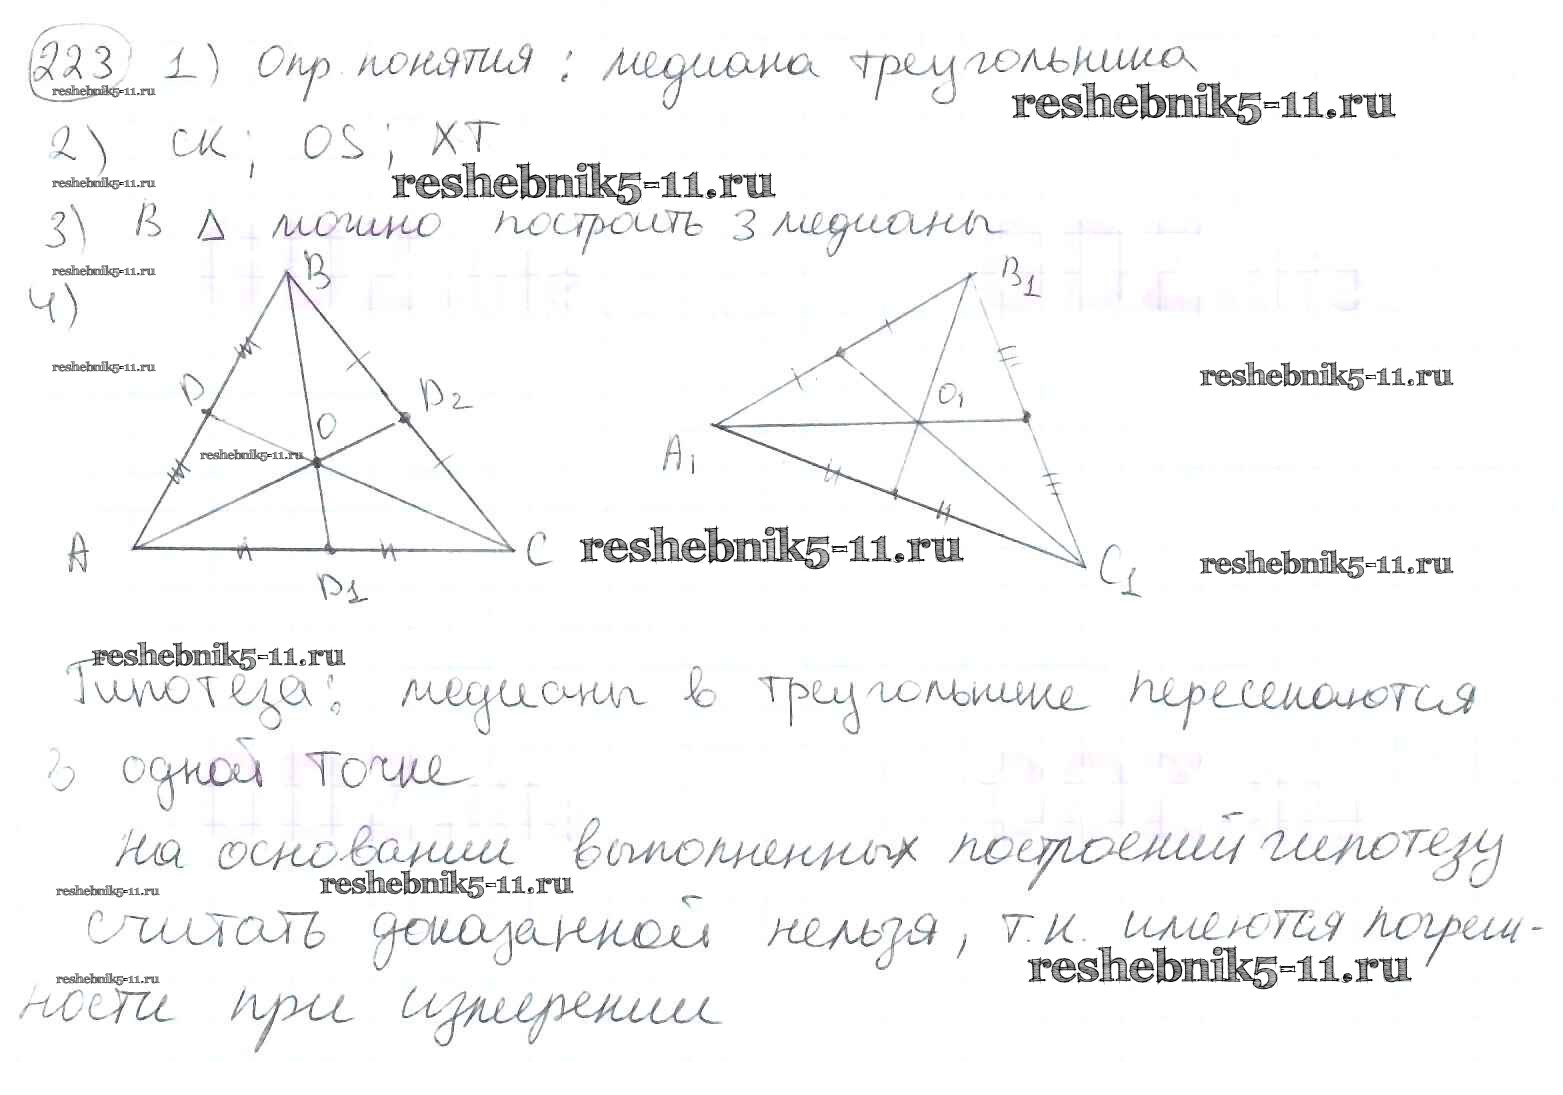 223 1) Опр. понятия: медиана треугольника
reshebnik5-11.ru
reshebnik5-11.ru
2) СК; OS; XT
reshebnik5-11.ru
reshebnik5-11.ru
3) В Δ можно построить 3 медианы
reshebnik5-11.ru
4)
B
B1
reshebnik5-11.ru
reshebnik5-11.ru
D
D2
O
O1
reshebnik5-11.ru
A1
A
C
reshebnik5-11.ru
reshebnik5-11.ru
D1
C1
reshebnik5-11.ru
Гипотеза: медианы в треугольнике пересекаются
в одной точке
На основании выполненных построений гипотезу
reshebnik5-11.ru
reshebnik5-11.ru
считать доказанной нельзя, т.к. имеются погреш-
reshebnik5-11.ru
reshebnik5-11.ru
ности при измерении